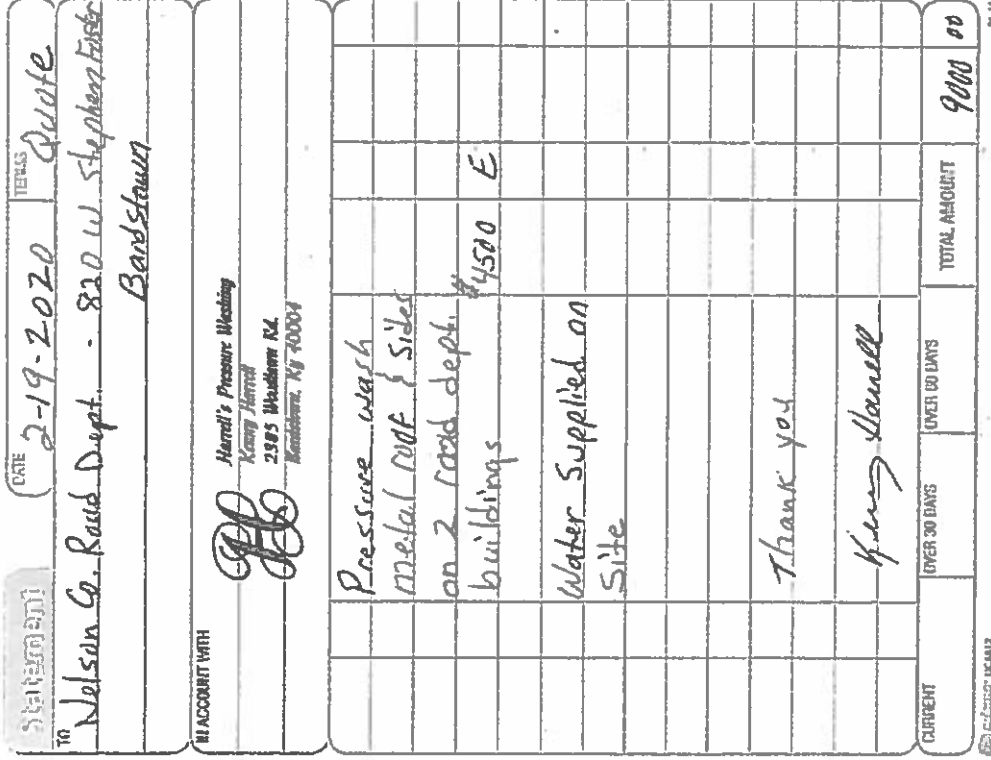 Statement
DATE 2-19-2020 TERMS Quote
TO Nelson Co. Road Dept. - 820 W Stephen Foster
Bardstown
IN ACCOUNT WITH
Harrell's Pressure Washing
Kenny Harrell
2985 Rd.
Bardstown, Ky 40004
Pressure wash
metal roof & sides
on 2 road dept.
buildings $4500 E
Water Supplied on
Site
Thank you
Kenny Harrell
CURRENT OVER 30 DAYS OVER 60 DAYS TOTAL AMOUNT 9000 00